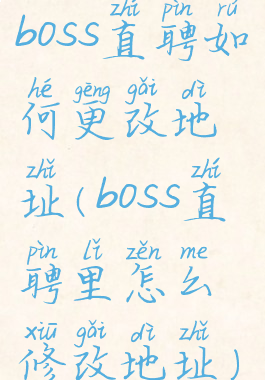 zhí pìn rú
boss直聘如
hé gēng gǎi dì
何更改地
zhǐ zhí
址(boss直
pìn lǐ zěn me
聘里怎么
xiū gǎi dì zhǐ
修改地址)